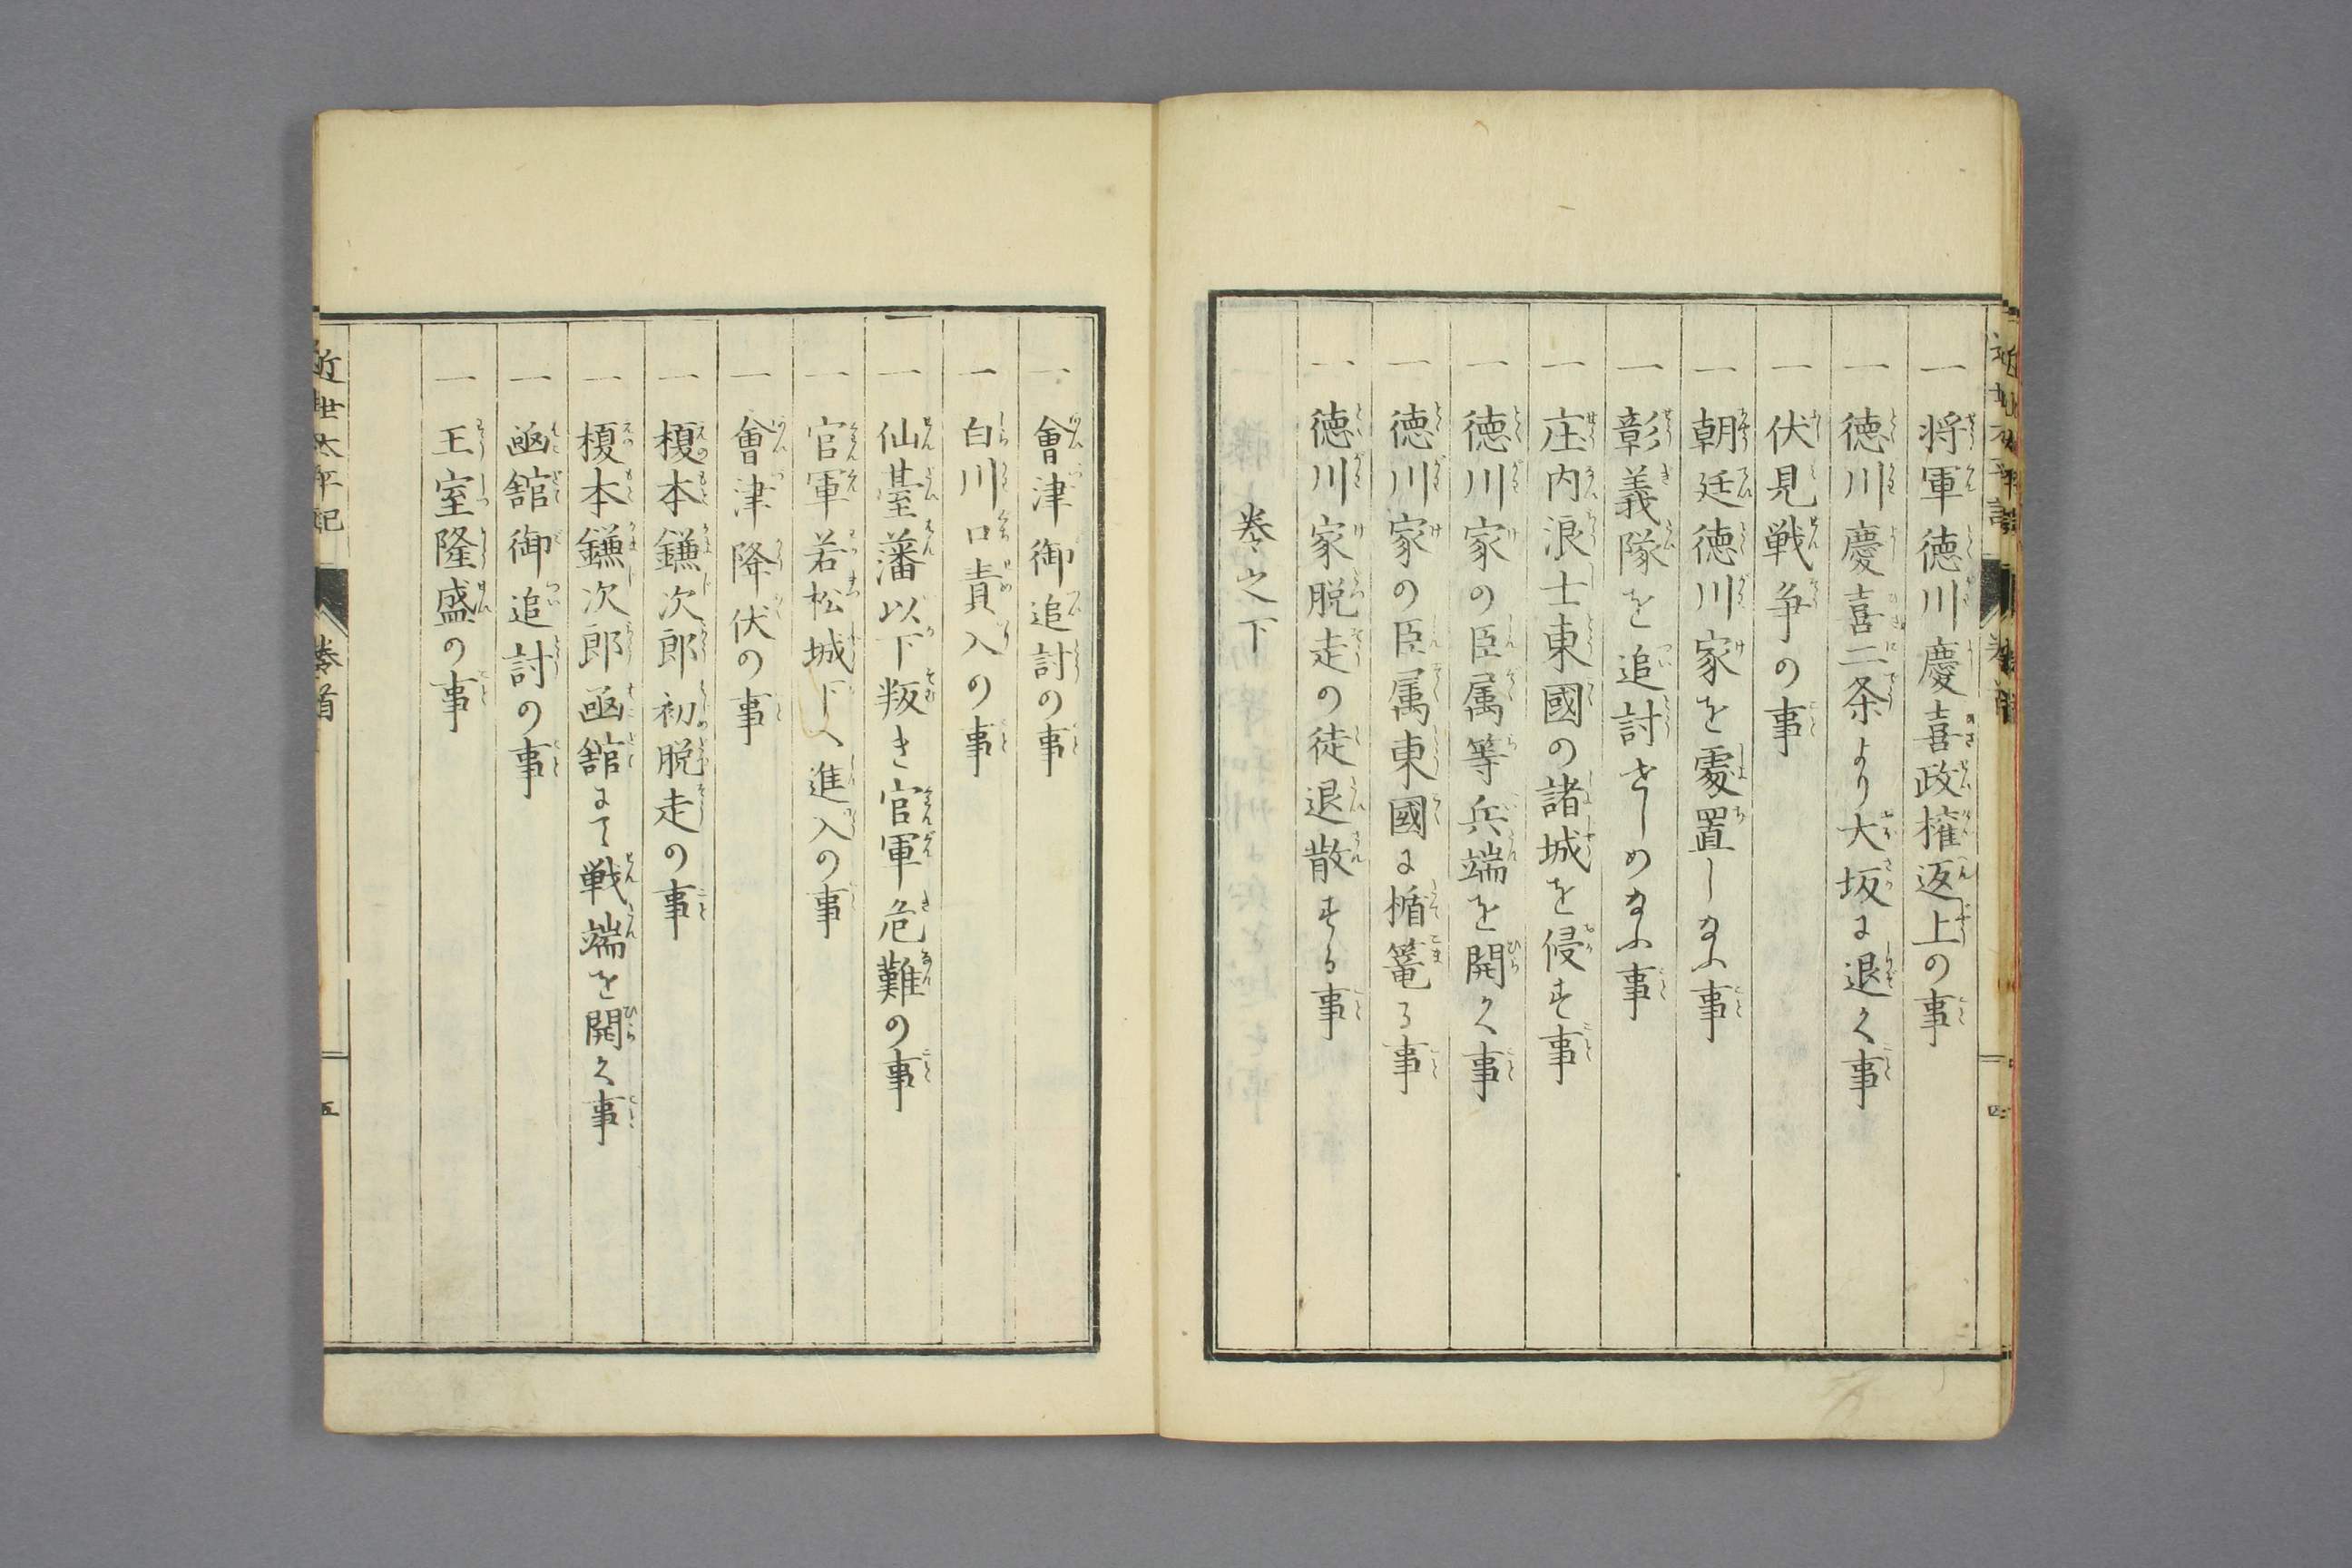 一 将軍徳川慶喜政権返上の事
一 徳川慶喜二条より大坂に退く事
一 伏見戦争の事
一 朝廷徳川家を處置しなふ事
一 彰義隊を追討せしめなふ事
一 庄内浪士東國の諸城を侵す事
一 徳川家の臣属等兵端を開く事
一 徳川家の臣属東國に楯篭る事
一 徳川家脱走の徒退散する事
巻之下
一 會津御追討の事
一 白川口責入の事
一 仙臺藩以下叛き官軍危難の事
一 官軍若松城下へ進入の事
一 會津降伏の事
一 榎本鎌次郎初脱走の事
一 榎本鎌次郎凾舘にて戦端を開く事
一 凾舘御追討の事
一 王室隆盛の事
近世太平記 巻首 五